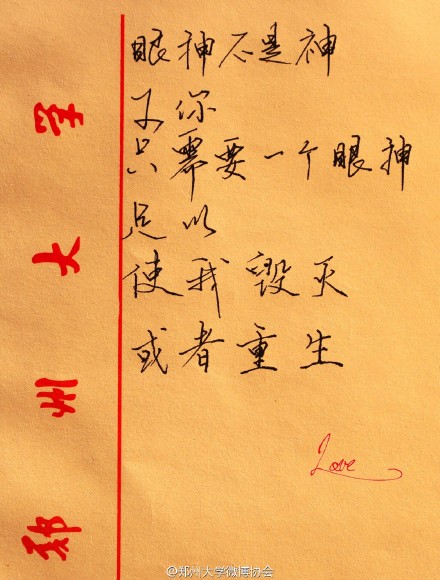 眼神不是神
你
只需要一个眼神
足以
使我毁灭
或者重生
Love
郑州大学
@郑州大学微博协会